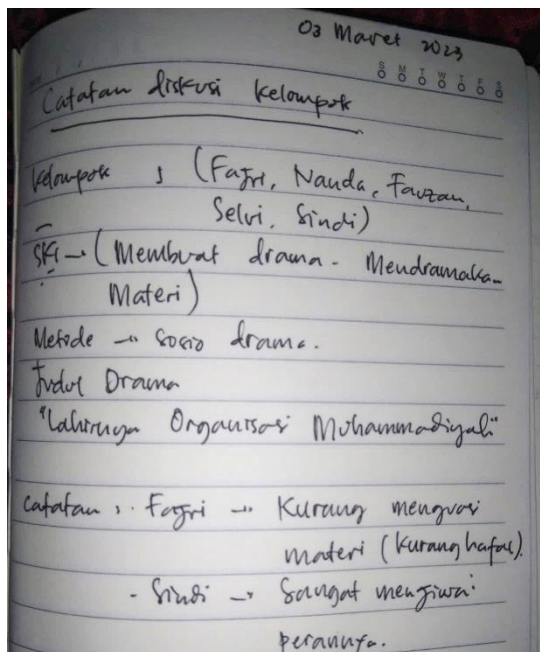 03 Maret 2023
S M T W T F S
Catatan diskusi kelompok
kelompok : (Fajri, Nanda, Fauzan,
Selvi, Sindi)
SKI → (Membuat drama - Mendramaka
Materi)
Metode → Sosio drama.
Judul Drama
"Lahirnya Organisasi Muhammadiyah"
Catatan : Fajri → Kurang menguasi
materi (Kurang hafal).
- Sindi → Sangat menjiwai
perannya.